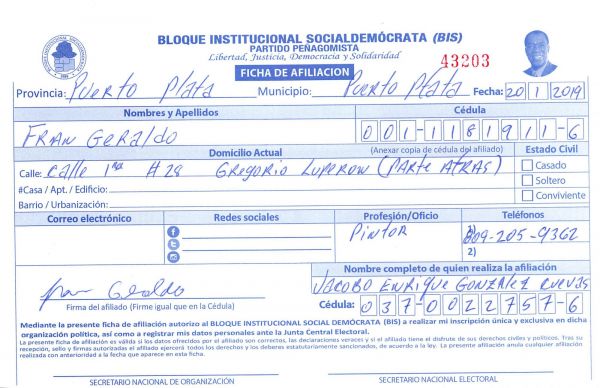 BLOQUE INSTITUCIONAL SOCIALDEMÓCRATA (BIS)
PARTIDO PEÑAGOMISTA
Libertad, Justicia, Democracia y Solidaridad
43203
FICHA DE AFILIACION
Provincia: Puerto Plata Municipio: Puerto Plata Fecha: 20/1/2019
Nombres y Apellidos Cédula
FRAN GeRALDO 001-1181911-6
Domicilio Actual (Anexar copia de cédula del afiliado) Estado Civil
Calle: Calle 1ra #28 GREGORIO LUPERON (PARTE ATRAS) Casado
#Casa / Apt. / Edificio: Soltero
Barrio / Urbanización: Conviviente
Correo electrónico Redes sociales Profesión/Oficio Teléfonos
PINTOR 1) 809-205-9362
2)
Nombre completo de quien realiza la afiliación
JACOBO ENRIQUE GONZALEZ CUEVAS
Fran Geraldo
Firma del afiliado (Firme igual que en la Cédula) Cédula: 037-0022757-6
Mediante la presente ficha de afiliación autorizo al BLOQUE INSTITUCIONAL SOCIAL DEMÓCRATA (BIS) a realizar mi inscripción única y exclusiva en dicha
organización política, así como a registrar mis datos personales ante la Junta Central Electoral.
La presente ficha de afiliación es válida si los datos ofrecidos por el afiliado son correctos, las declaraciones veraces y si el afiliado tiene el disfrute de sus derechos civiles y políticos. Tras su
recepción, sello y firmas autorizadas el afiliado ejercerá todos los derechos y los deberes estatutariamente sancionados, de acuerdo a la ley. La presente afiliación anula cualquier afiliación
realizada con anterioridad a la fecha que aparece en esta ficha.
SECRETARIO NACIONAL DE ORGANIZACIÓN SECRETARIO NACIONAL ELECTORAL